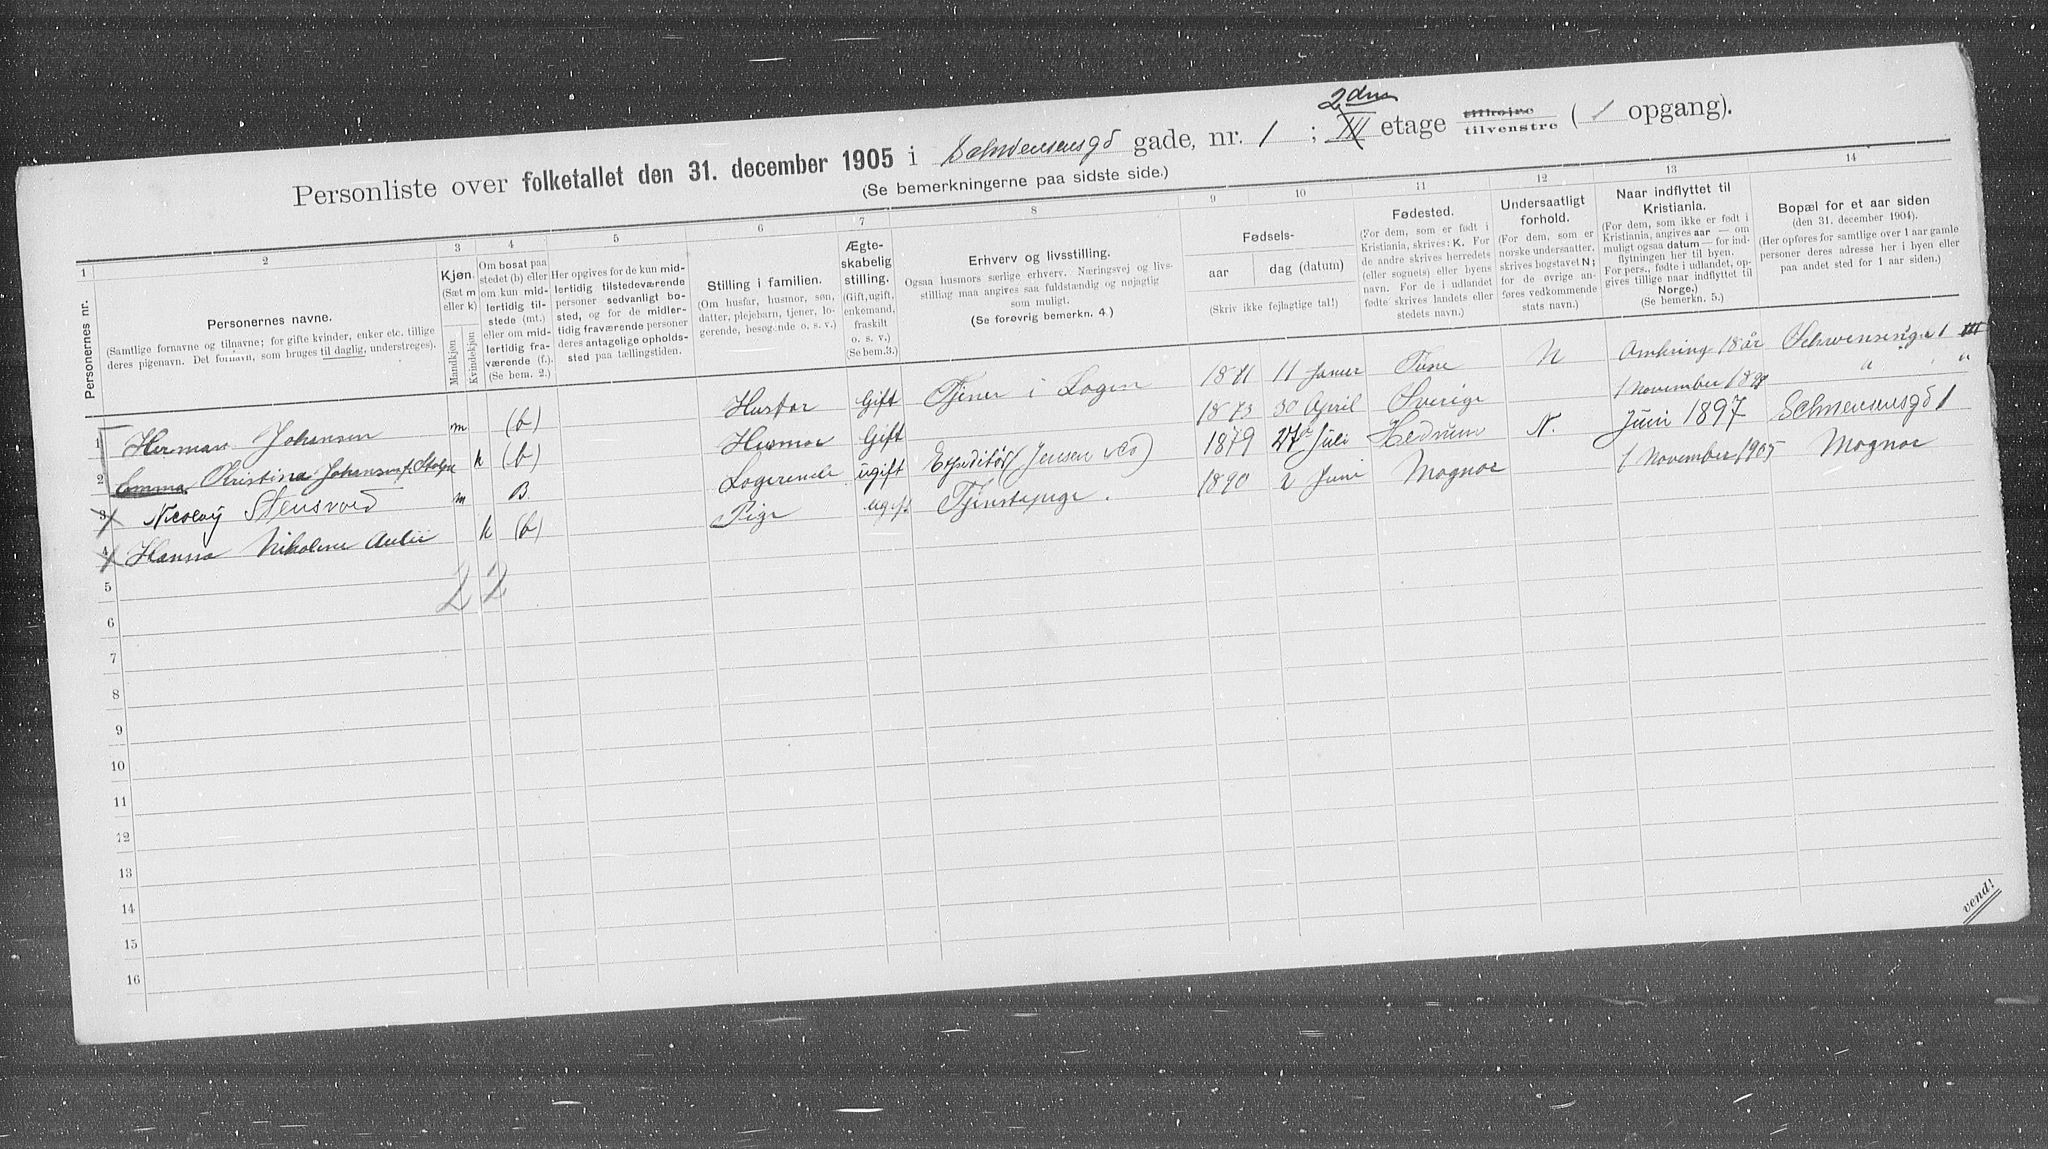 Personliste over folketallet den 31. december 1905 i Schwensensgd gade, nr. 1 ; 2den III etage tilhøjre tilvenstre ( 1 opgang).
(Se bemerkningerne paa sidste side.)
1 2 3 4 5 6 7 8 9 10 11 12 13 14
Personernes nr.
Personernes navne.
(Samtlige fornavne og tilnavne; for gifte kvinder, enker etc. tillige
deres pigenavn. Det fornavn, som bruges til daglig, understreges).
Kjøn.
(Sæt m
eller k)
Mandkjøn
Kvindekjøn
Om bosat paa
stedet (b) eller
om kun mid-
lertidig til-
stede (mt.)
eller om mid-
lertidig fra-
værende (f.).
(Se bem. 2.)
Her opgives for de kun mid-
lertidig tilstedeværende
personer sedvanlig bo-
sted, og for de midler-
tidig fraværende personer
deres antagelige opholds-
sted paa tællingstiden.
Stilling i familien.
(Om husfar, husmor, søn,
datter, plejebarn, tjener, lo-
gerende, besøgende o. s. v.)
Ægte-
skabelig
stilling.
(Gift, ugift,
enkemand,
fraskilt
o. s. v.)
(Se bem.3.)
Erhverv og livsstilling.
Ogsaa husmors særlige erhverv. Næringsvej og livs-
stilling maa angives saa fuldstændig og nøjagtig
som muligt.
(Se forøvrig bemerkn. 4.)
Fødsels-
aar
dag (datum)
(Skriv ikke fejlagtige tal!)
Fødested.
(For dem, som er født i
Kristiania, skrives: K. For
de andre skrives herredets
(eller sognets) eller byens
navn. For de i udlandet
fødte skrives landets eller
stedets navn.)
Undersaatligt
forhold.
(For dem, som er
norske undersaatter,
skrives bogstavet N;
for de øvrige an-
føres vedkommende
stats navn.)
Naar indflyttet til
Kristiania.
(For dem, som ikke er født i
Kristiania, angives aar — om
muligt ogsaa datum — for ind-
flytningen her til byen.
For pers., fødte i udlandet, op-
gives tillige naar indflyttet til
Norge.)
(Se bemerkn. 5.)
Bopæl for et aar siden
(den 31. december 1904).
(Her opføres for samtlige over 1 aar gamle
personer deres adresse her i byen eller
paa andet sted for 1 aar siden.)
1 Herman Johansen m (b) Husfar Gift Tjener i Logen 1871 11 Januar Tune N Omkring 18 aar Schwensensgd 1 III
2 Emma Kristina Johansen f. k (b) Husmor Gift 1873 30 April Sverige 1 November " " "
3 Nicolay Stensvold m B Logerende ugift Expeditør (Jensen & Co) 1879 27de Juli Hedrum N. Juni 1897 Schwensensgd 1
4 Hanna Nikoline k (b) Pige ugift Tjenstepige. 1890 2 Juni Mognor 1 November 1905 Mognor
2 2
5
6
7
8
9
10
11
12
13
14
15
16
vend!